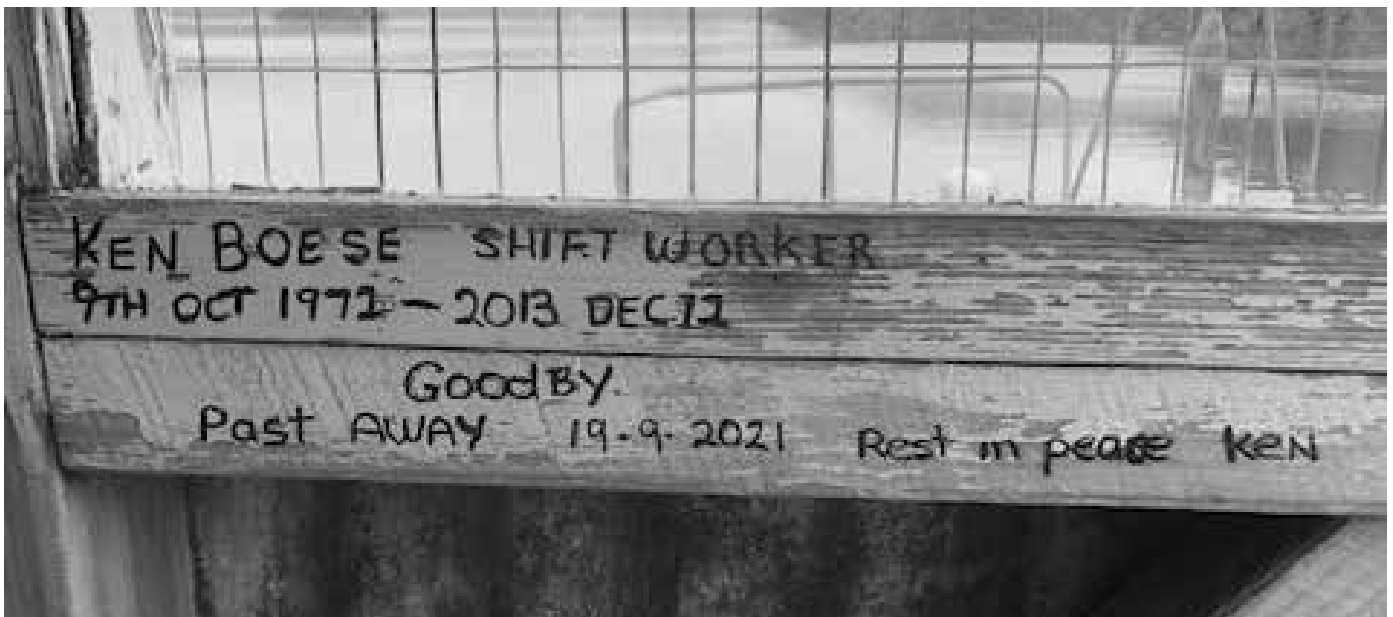 KEN BOESE SHIFT WORKER
9TH OCT 1972 - 2013 DEC 12
GoodBY.
Past AWAY 19-9-2021 Rest in peace KEN